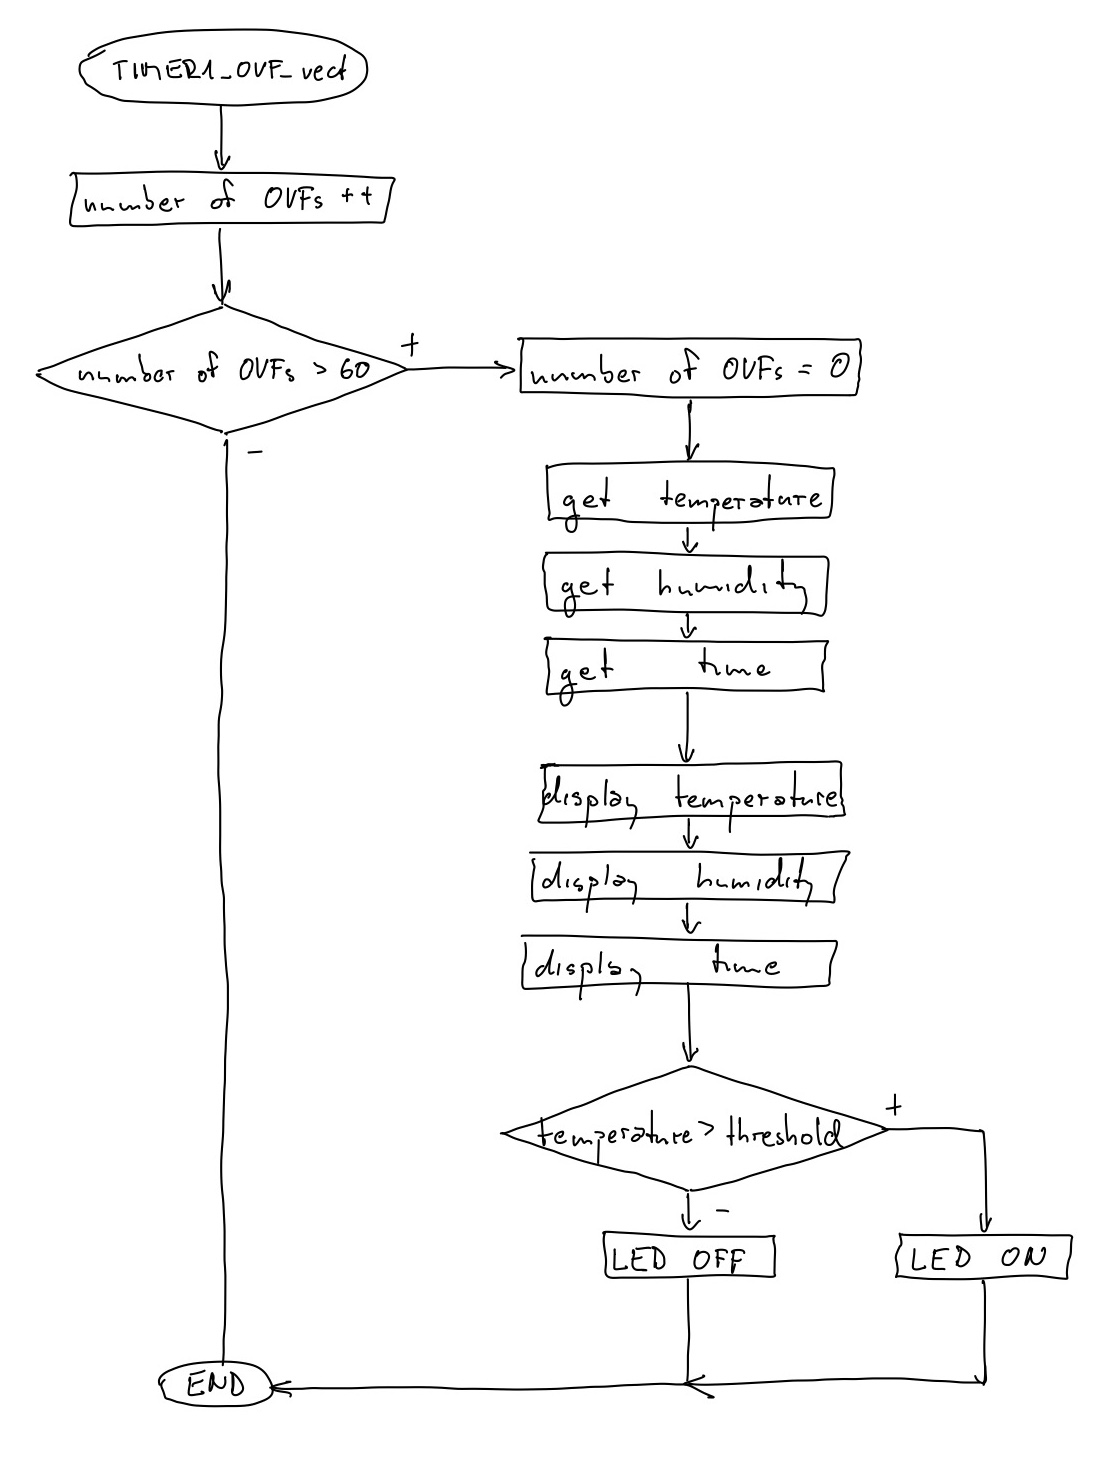 TIMER1_OVF_vect
number of OVFs ++
number of OVFs > 60
+
-
number of OVFs = 0
get temperature
get humidity
get time
display temperature
display humidity
display time
temperature > threshold
+
-
LED OFF
LED ON
END